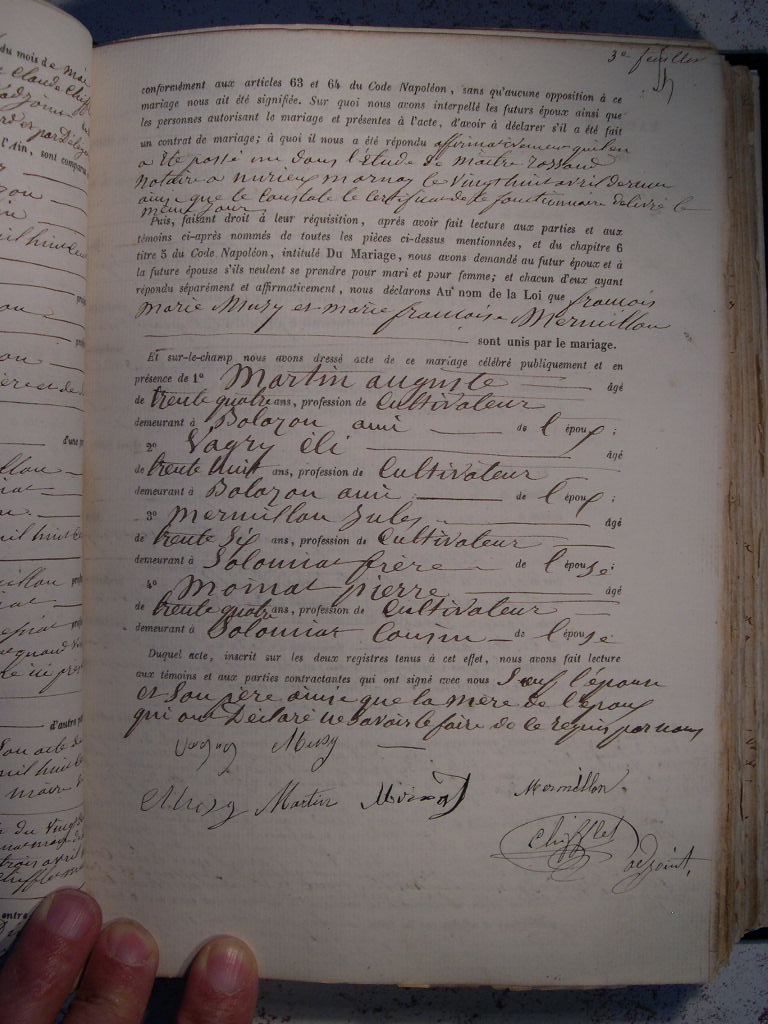 3e feuillet
conformément aux articles 63 et 64 du Code Napoléon, sans qu'aucune opposition à ce
mariage nous ait été signifiée. Sur quoi nous avons interpellé les futurs époux ainsi que
les personnes autorisant le mariage et présentes à l'acte, d'avoir à déclarer s'il a été fait
un contrat de mariage; à quoi il nous a été répondu affirmativement qu'il en
a été passé un dans l'étude de maître
notaire a le vingt huit avril dernier
ainsi que le constate le certificat de ce fonctionnaire délivré le
même jour
Puis, faisant droit à leur réquisition, après avoir fait lecture aux parties et aux
témoins ci-après nommés de toutes les pièces ci-dessus mentionnées, et du chapitre 6
titre 5 du Code Napoléon, intitulé Du Mariage, nous avons demandé au futur époux et à
la future épouse s'ils veulent se prendre pour mari et pour femme; et chacun d'eux ayant
répondu séparément et affirmativement, nous déclarons Au nom de la Loi que françois
marie Musy et marie françoise Mermillon
sont unis par le mariage.
Et sur-le-champ nous avons dressé acte de ce mariage célébré publiquement et en
présence de 1° Martin auguste âgé
de trente quatre ans, profession de Cultivateur
demeurant à Bolozon ami de l'époux;
2° Vagry éli âgé
de trente huit ans, profession de Cultivateur
demeurant à Bolozon ami de l'époux;
3° Mermillon Jules âgé
de trente six ans, profession de Cultivateur
demeurant à Solomiat frère de l'épouse
4° Moinat pierre âgé
de trente quatre ans, profession de Cultivateur
demeurant à Solomiat Cousin de l'épouse
Duquel acte, inscrit sur les deux registres tenus à cet effet, nous avons fait lecture
aux témoins et aux parties contractantes qui ont signé avec nous Sauf l'épouse
et Son père ainsi que la mère de l'époux
qui ont Déclaré ne savoir le faire de ce requis par nous
Vagry Musy
Musy Martin Moinat Mermillon
Chifflet
adjoint.